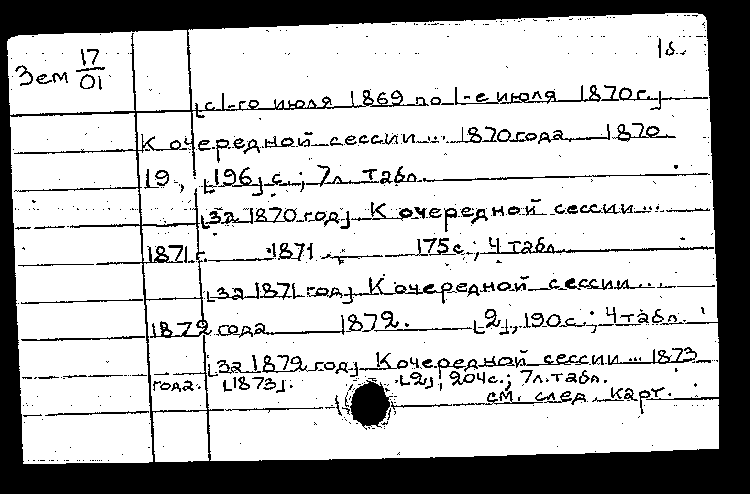 1б.
Зем 17/01
[с 1-го июля 1869 по 1-е июля 1870 г.]
К очередной сессии ... 1870 года 1870.
19, [196] с.; 7 л. табл.
[за 1870 год] К очередной сессии ...
1871 г. 1871. 175 с.; 4 табл.
[за 1871 год] К очередной сессии ...
1872 года 1872. [2], 190 с.; 4 табл.
[за 1872 год] К очередной сессии ... 1873
года. [1873]. [2]; 204 с.; 7 л. табл.
см. след. карт.